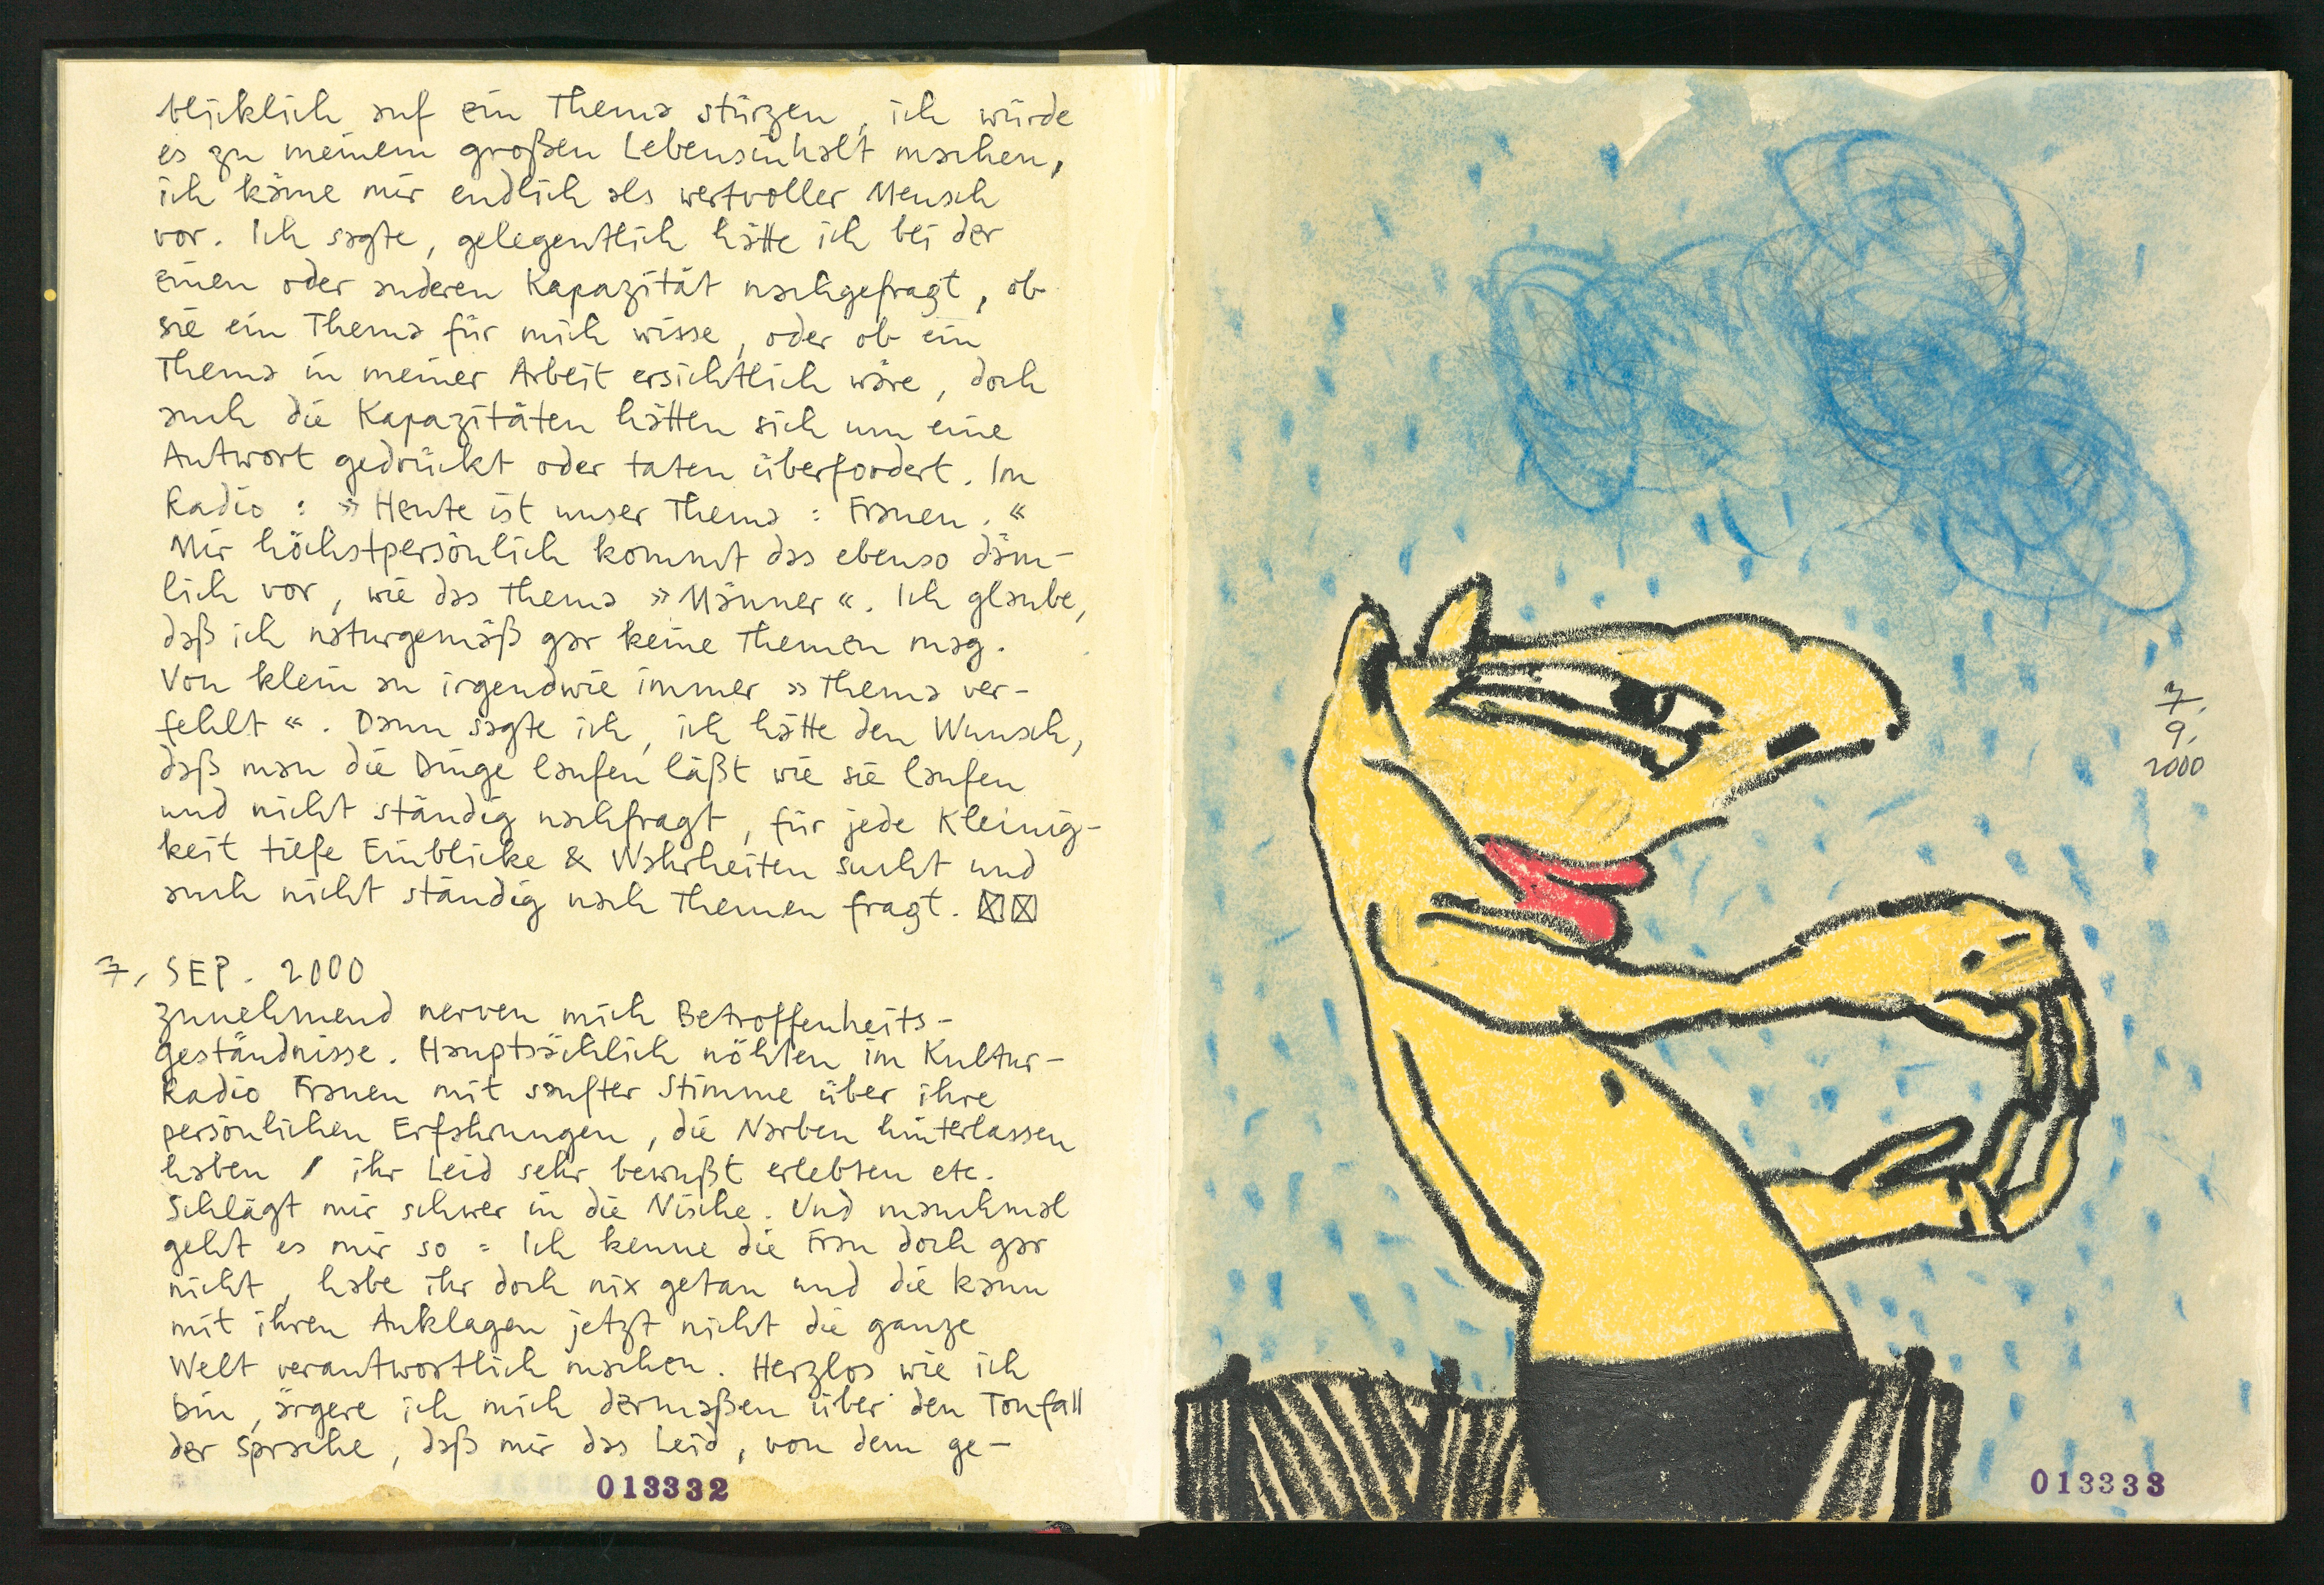 blicklich auf ein Thema stürzen, ich würde
es zu meinem großen Lebensinhalt machen,
ich käme mir endlich als wertvoller Mensch
vor. Ich sagte, gelegentlich hätte ich bei der
einen oder anderen Kapazität nachgefragt, ob
sie ein Thema für mich wisse, oder ob ein
Thema in meiner Arbeit ersichtlich wäre, doch
auch die Kapazitäten hätten sich um eine
Antwort gedrückt oder taten überfordert. Im
Radio : » Heute ist unser Thema : Frauen. «
Mir höchstpersönlich kommt das ebenso däm-
lich vor, wie das Thema » Männer «. Ich glaube,
daß ich naturgemäß gar keine Themen mag.
Von klein an irgendwie immer » Thema ver-
fehlt «. Dann sagte ich, ich hätte den Wunsch,
daß man die Dinge laufen läßt wie sie laufen
und nicht ständig nachfragt, für jede Kleinig-
keit tiefe Einblicke & Wahrheiten sucht und
auch nicht ständig nach Themen fragt. ☒☒
7. SEP. 2000
Zunehmend nerven mich Betroffenheits-
geständnisse. Hauptsächlich nöhlen im Kultur-
Radio Frauen mit sanfter Stimme über ihre
persönlichen Erfahrungen, die Narben hinterlassen
haben / ihr Leid sehr bewußt erlebten etc.
Schlägt mir schwer in die Nische. Und manchmal
geht es mir so = Ich kenne die Frau doch gar
nicht, habe ihr doch nix getan und die kann
mit ihren Anklagen jetzt nicht die ganze
Welt verantwortlich machen. Herzlos wie ich
bin, ärgere ich mich dermaßen über den Tonfall
der Sprache, daß mir das Leid, von dem ge-
013332
7.
9.
2000
013333